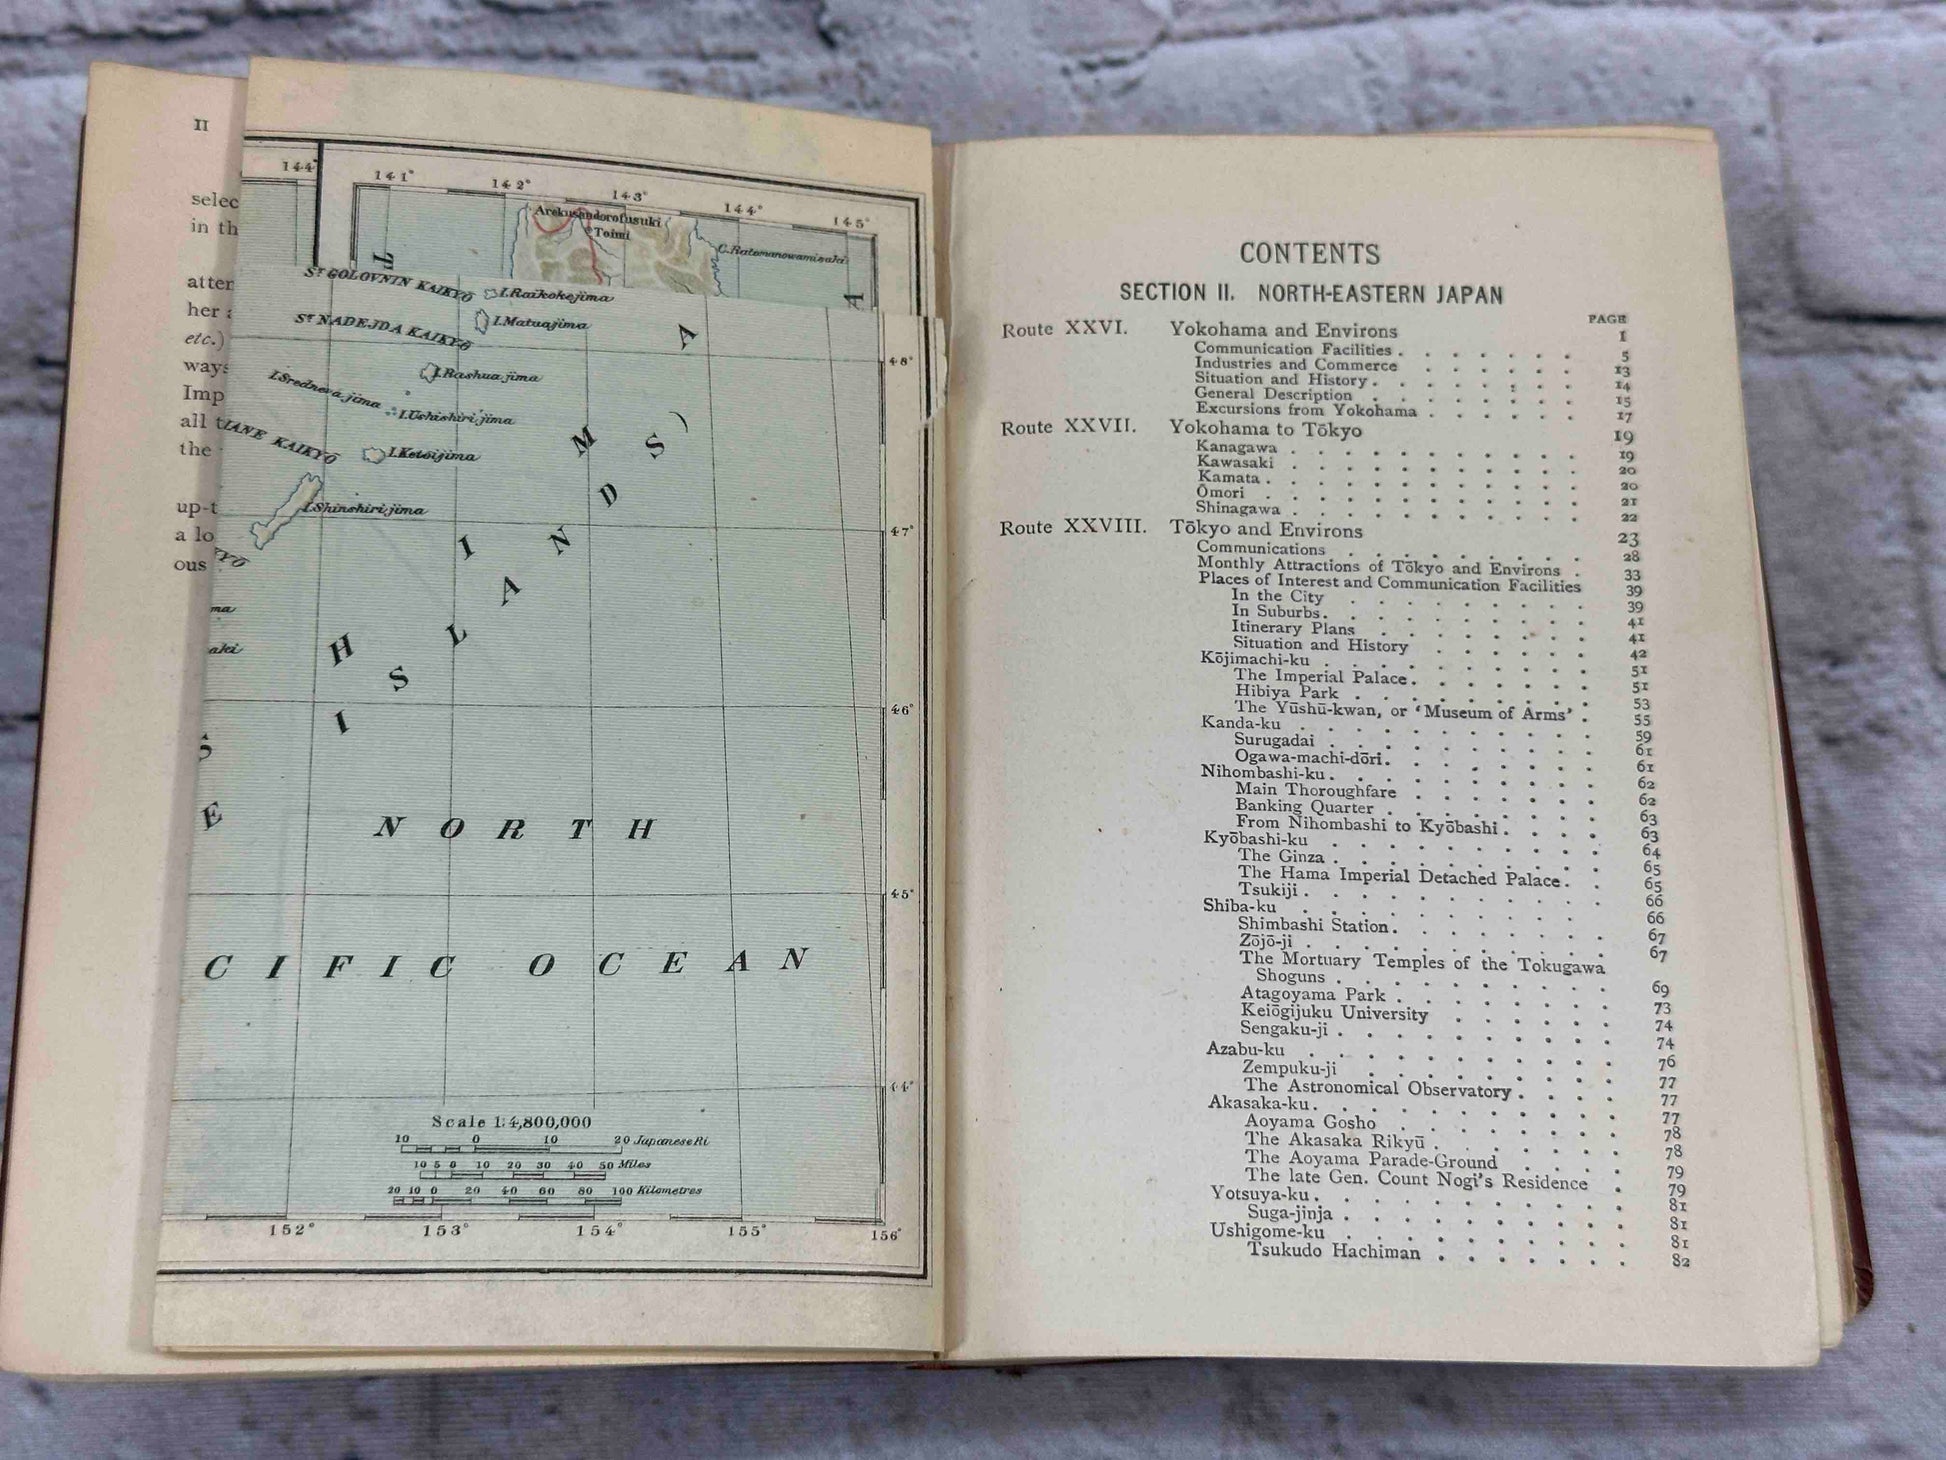 II
selec
in th
atten
her a
etc.)
ways
Imp
all t
the
up-t
a lo
ous
144°
141° 142° 143° 144° 145°
Arekusandorofusuki
Toimi
C. Ratomanowamisaki
A
St GOLOVNIN KAIKYŌ
I. Raikokejima
St NADEJDA KAIKYŌ
I. Matuajima
A
48°
I. Rashua jima
I. Srednera jima
I. Ushishiri jima
M
S )
IANE KAIKYŌ
I. Ketoijima
D
I. Shinshiri jima
47°
N
I
KYŌ
A
ma
L
H
aki
S
46°
I
S
E
NORTH
45°
CIFIC OCEAN
44°
Scale 1:4,800,000
10 0 10 20 Japanese Ri
10 5 0 10 20 30 40 50 Miles
20 10 0 20 40 60 80 100 Kilometres
152° 153° 154° 155° 156°
CONTENTS
SECTION II. NORTH-EASTERN JAPAN
PAGE
Route XXVI. Yokohama and Environs 1
Communication Facilities . . . . . . . 5
Industries and Commerce . . . . . . 13
Situation and History . . . . . . . 14
General Description . . . . . . . 15
Excursions from Yokohama . . . . . . 17
Route XXVII. Yokohama to Tōkyo 19
Kanagawa . . . . . . . . . . 19
Kawasaki . . . . . . . . . . 20
Kamata . . . . . . . . . . . 20
Ōmori . . . . . . . . . . . 21
Shinagawa . . . . . . . . . . 22
Route XXVIII. Tōkyo and Environs 23
Communications . . . . . . . . . 28
Monthly Attractions of Tōkyo and Environs . 33
Places of Interest and Communication Facilities 39
In the City . . . . . . . . . 39
In Suburbs . . . . . . . . . . 41
Itinerary Plans . . . . . . . . 41
Situation and History . . . . . . 42
Kōjimachi-ku . . . . . . . . . . 51
The Imperial Palace . . . . . . . 51
Hibiya Park . . . . . . . . . 53
The Yūshū-kwan, or ‘Museum of Arms’ . 55
Kanda-ku . . . . . . . . . . 59
Surugadai . . . . . . . . . . 61
Ogawa-machi-dōri . . . . . . . . 61
Nihombashi-ku . . . . . . . . . . 62
Main Thoroughfare . . . . . . . 62
Banking Quarter . . . . . . . . 63
From Nihombashi to Kyōbashi . . . . 63
Kyōbashi-ku . . . . . . . . . . 64
The Ginza . . . . . . . . . . 65
The Hama Imperial Detached Palace . . 65
Tsukiji . . . . . . . . . . . 66
Shiba-ku . . . . . . . . . . . 66
Shimbashi Station . . . . . . . . 67
Zōjō-ji . . . . . . . . . . . 67
The Mortuary Temples of the Tokugawa
Shoguns . . . . . . . . . . 69
Atagoyama Park . . . . . . . . 73
Keiōgijuku University . . . . . . 74
Sengaku-ji . . . . . . . . . . 74
Azabu-ku . . . . . . . . . . . 76
Zempuku-ji . . . . . . . . . . 77
The Astronomical Observatory . . . . 77
Akasaka-ku . . . . . . . . . . . 77
Aoyama Gosho . . . . . . . . . 78
The Akasaka Rikyū . . . . . . . 78
The Aoyama Parade-Ground . . . . . 79
The late Gen. Count Nogi's Residence . 79
Yotsuya-ku . . . . . . . . . . . 81
Suga-jinja . . . . . . . . . . 81
Ushigome-ku . . . . . . . . . . 81
Tsukudo Hachiman . . . . . . . 82